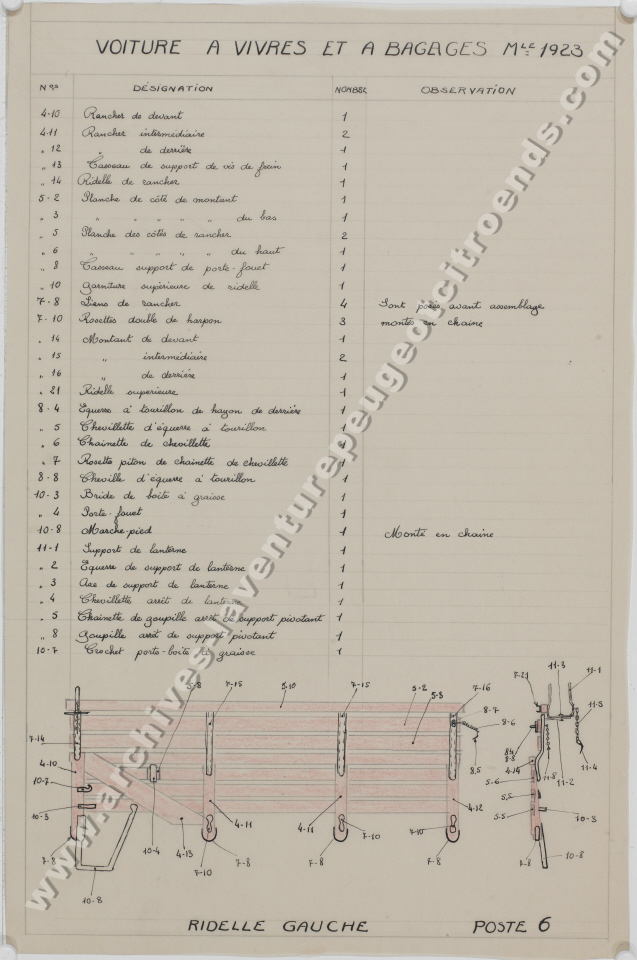 VOITURE A VIVRES ET A BAGAGES Mle 1923
Nos DÉSIGNATION NOMBRE OBSERVATION
4-10 Rancher de devant 1
4-11 Rancher intermédiaire 2
" 12 " de derrière 1
" 13 Tasseau de support de vis de frein 1
" 14 Ridelle de rancher 1
5-2 Planche de côté de montant 1
" 3 " " " " " du bas 1
" 5 Planche des côtés de rancher 2
" 6 " " " " " du haut 1
" 8 Tasseau support de porte-fouet 1
" 10 Garniture supérieure de ridelle 1
7-8 Liens de rancher 4 Sont posés avant assemblage
7-10 Rosettes double de harpon 3 montés en chaine
" 14 Montant de devant 1
" 15 " intermédiaire 2
" 16 " de derrière 1
" 21 Ridelle superieure 1
8-4 Equerre à tourillon de hayon de derrière 1
" 5 Chevillette d'équerre à tourillon 1
" 6 Chainette de chevillette 1
" 7 Rosette piton de chainette de chevillette 1
8-8 Cheville d'équerre à tourillon 1
10-3 Bride de boite à graisse 1
" 4 Porte-fouet 1
10-8 Marche-pied 1 Monté en chaine
11-1 Support de lanterne 1
" 2 Equerre de support de lanterne 1
" 3 Axe de support de lanterne 1
" 4 Chevillette arrêt de lanterne 1
" 5 Chainette de goupille arrêt de support pivotant 1
" 8 Goupille arrêt de support pivotant 1
10-7 Crochet porte-boite à graisse 1
5-8 7-15 5-10 7-15 5-2 5-3 7-16 8-7 8-6 8-5
7-21 11-3 11-1 11-5
7-14 4-10 10-7 10-3
8-4 8-8 4-14 11-8 11-2 11-4
5-6 5-5 5-5 10-3
4-11 4-11 4-12
7-8 10-4 4-13 7-10 7-8 7-10 7-8 7-10 7-8 7-8 10-8
10-8
RIDELLE GAUCHE POSTE 6
www.archives.laventurepeugeotcitroends.com